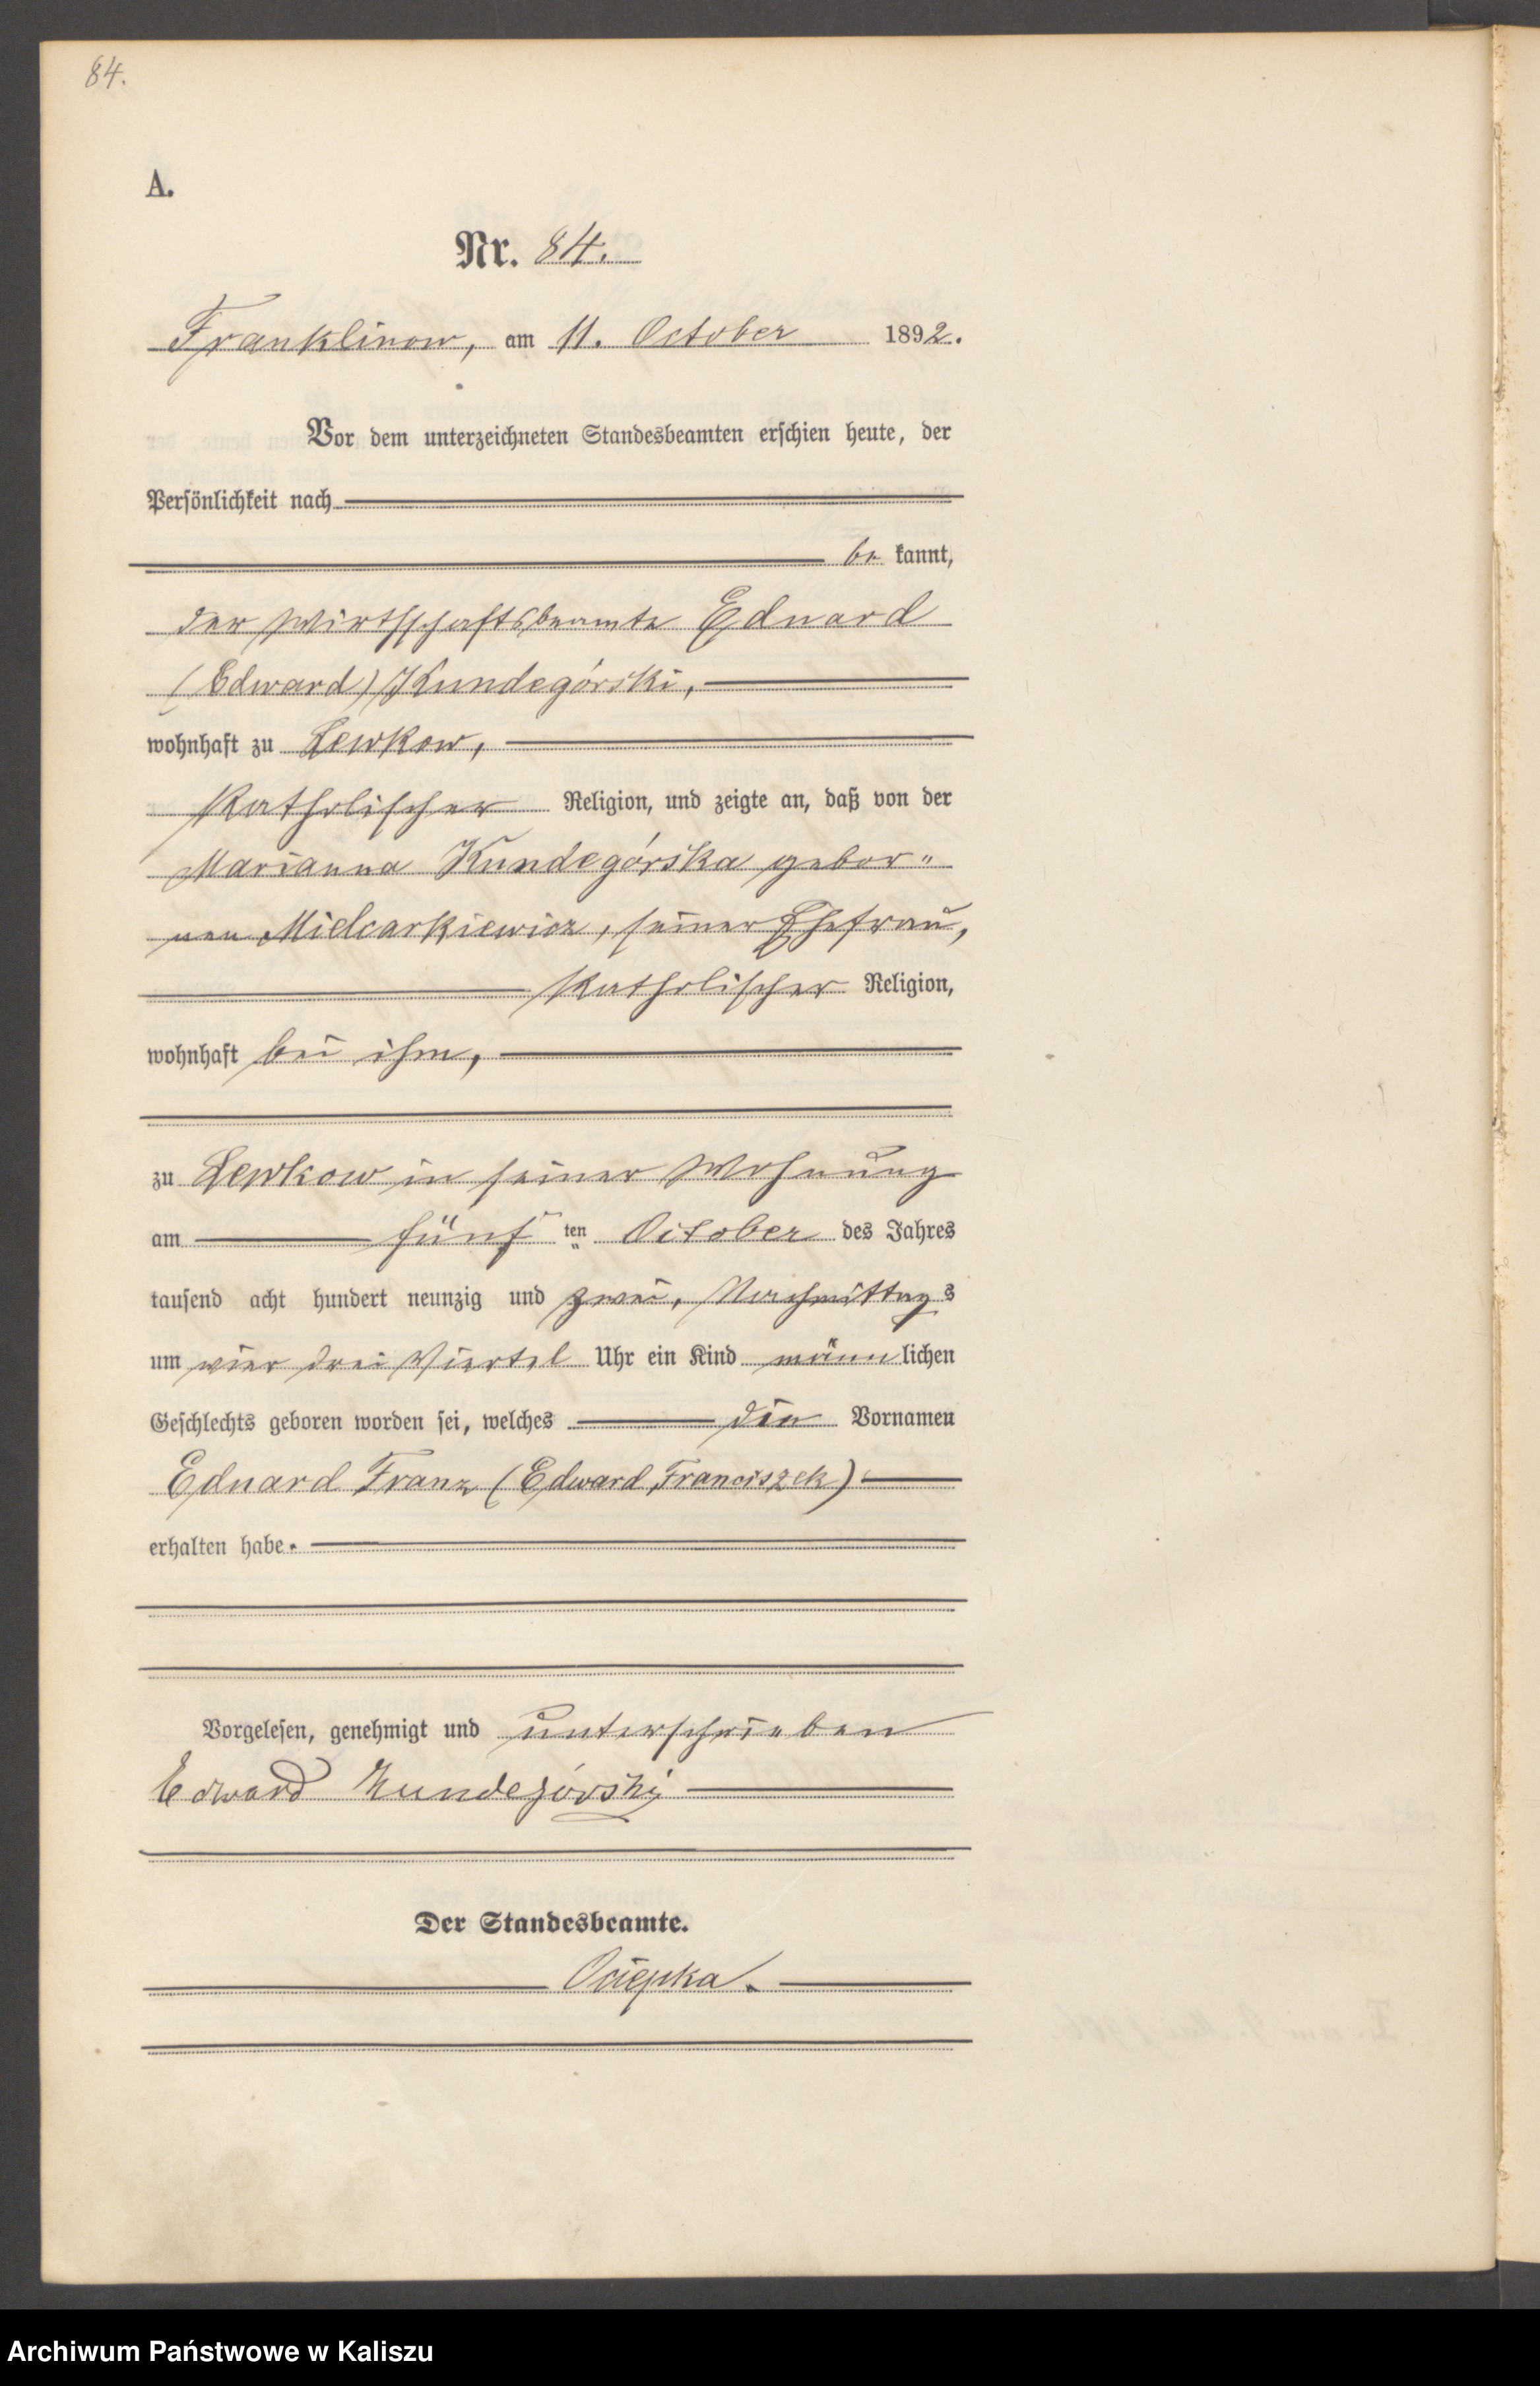 84.
A.
Nr. 84.
Franklinow, am 11. October 1892.
Vor dem unterzeichneten Standesbeamten erschien heute, der
Persönlichkeit nach
be kannt,
der Wirthschaftsbeamte Eduard
(Edward) Kundegórski,
wohnhaft zu Lewkow,
katholischer Religion, und zeigte an, daß von der
Marianna Kundegórska gebor„
nen Mielcarkiewicz, seiner Ehefrau,
katholischer Religion,
wohnhaft bei ihm,
zu Lewkow in seiner Wohnung
am fünf ten October des Jahres
tausend acht hundert neunzig und zwei, Nachmittags
um vier drei Viertel Uhr ein Kind männlichen
Geschlechts geboren worden sei, welches die Vornamen
Eduard Franz (Edward Franciszek)
erhalten habe.
Vorgelesen, genehmigt und unterschrieben
Edward Kundegórski
Der Standesbeamte.
Ociepka.
Archiwum Państwowe w Kaliszu